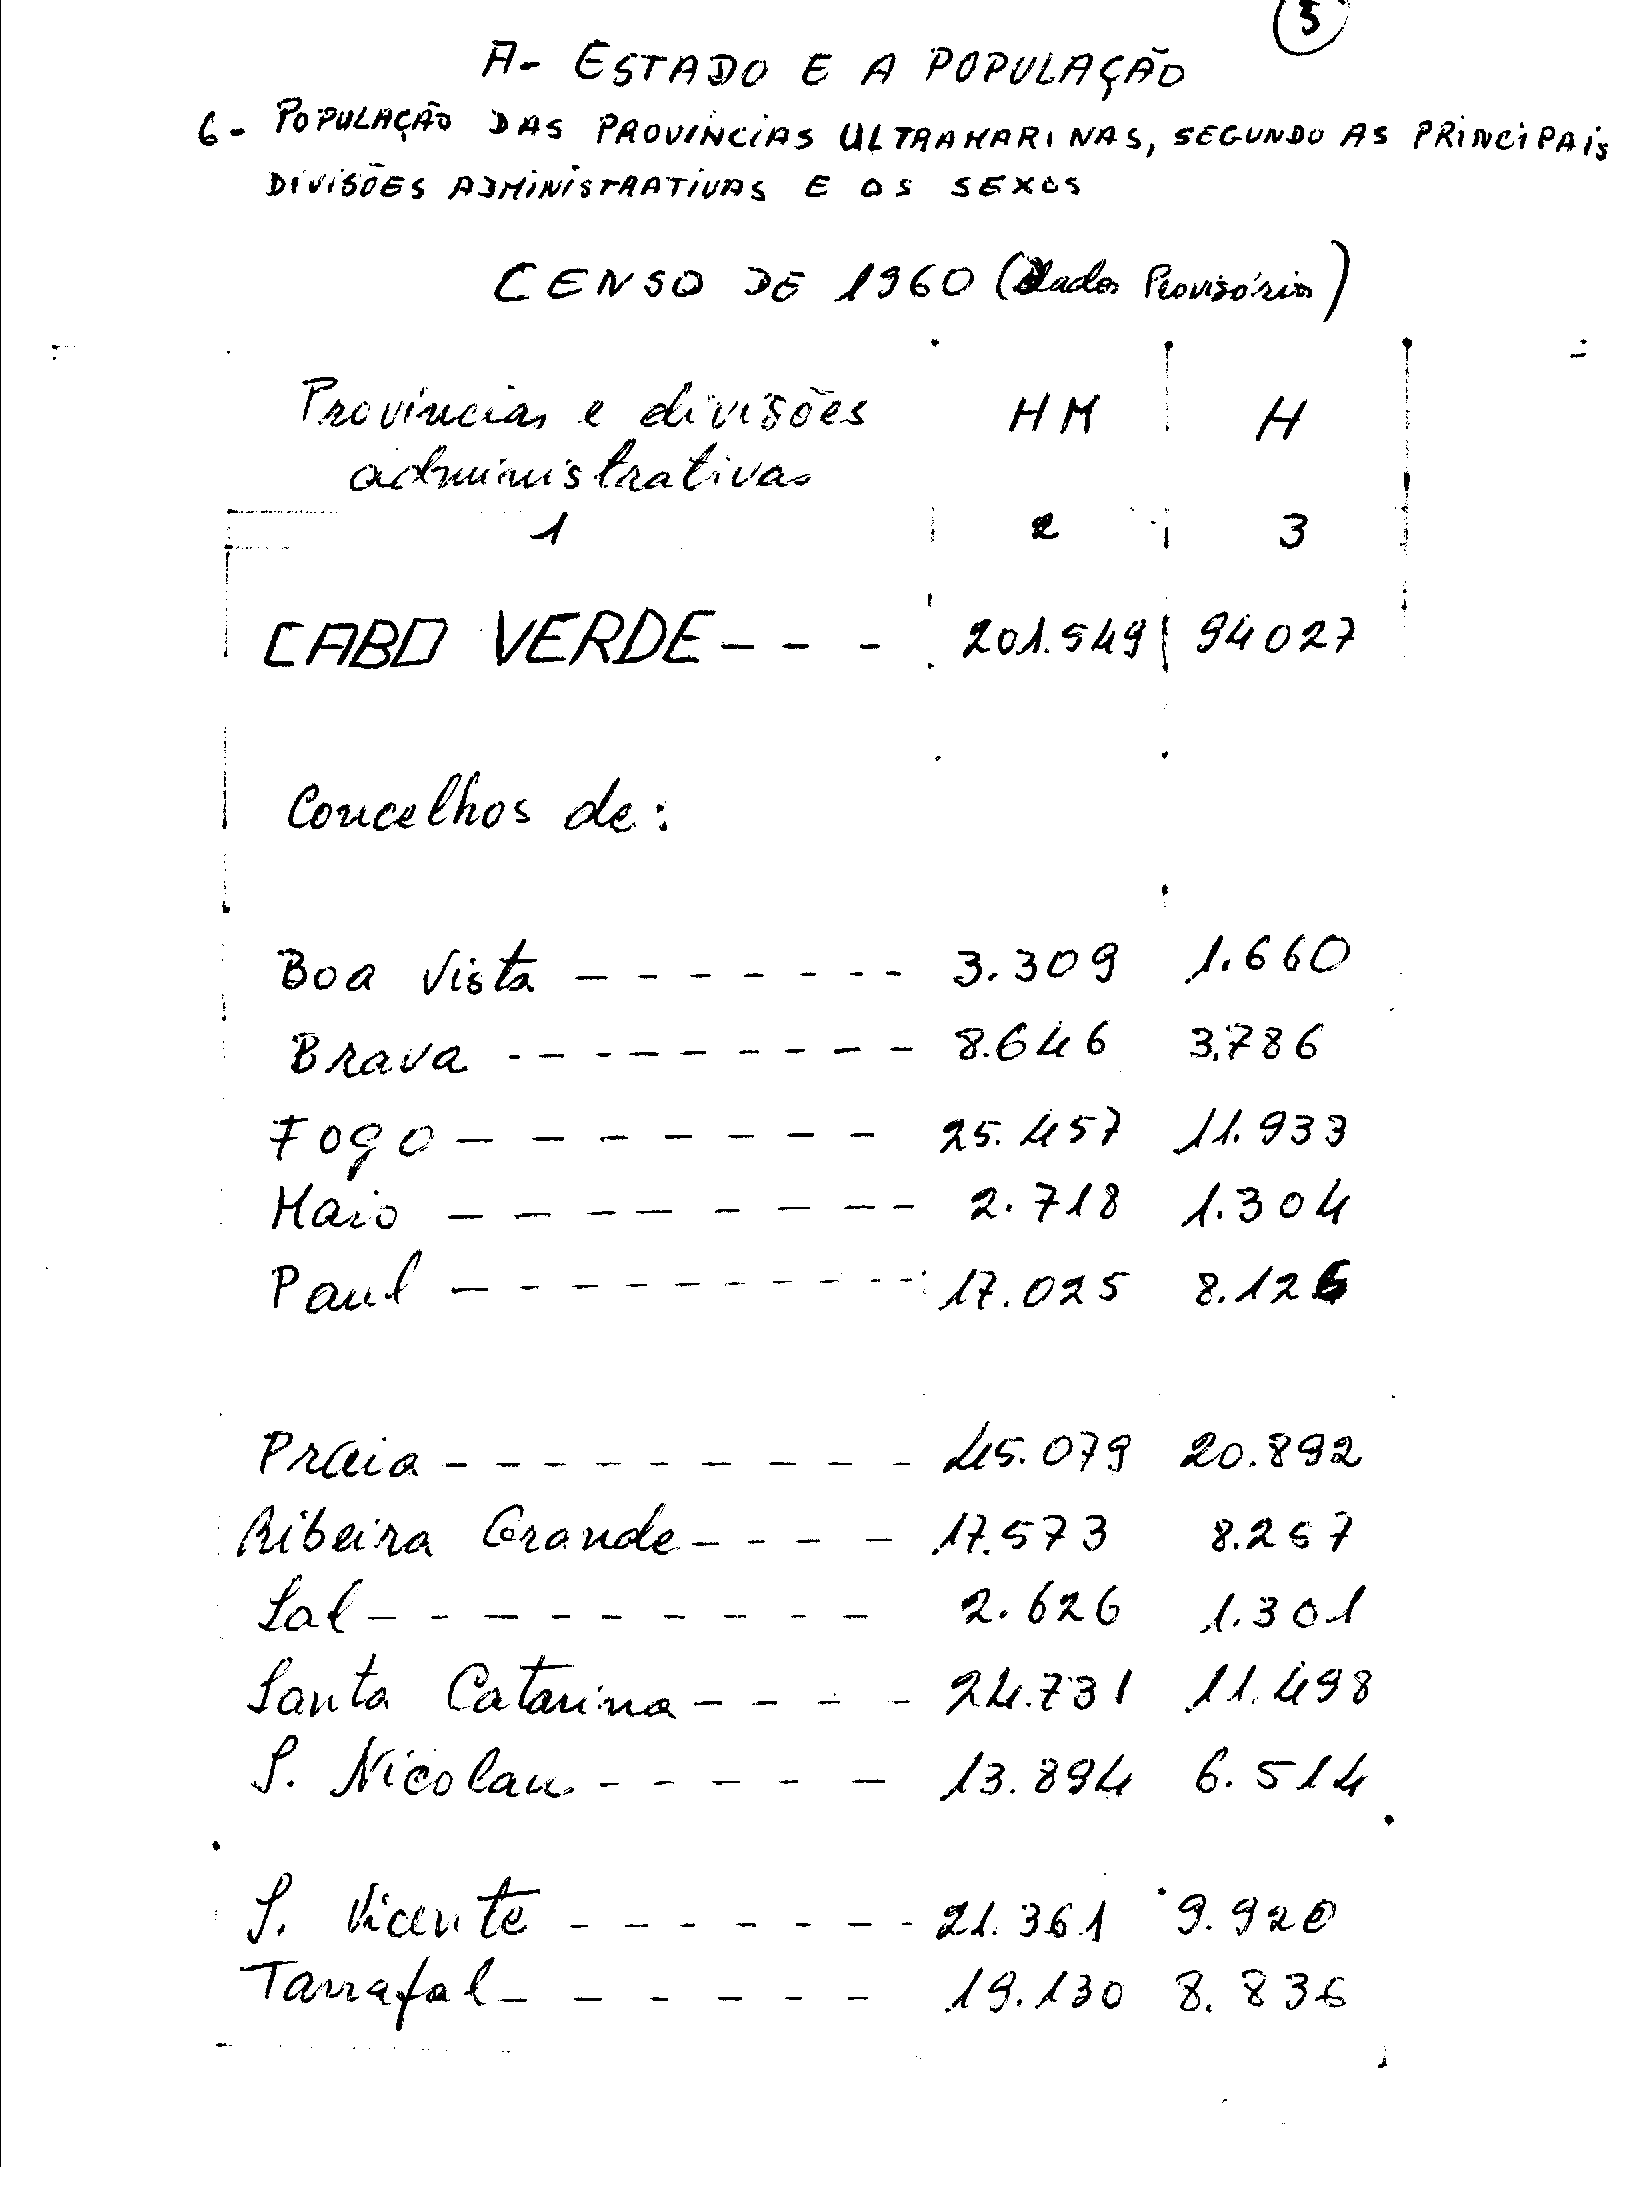 5
A- ESTADO E A POPULAÇÃO
6- POPULAÇÃO DAS PROVÍNCIAS ULTRAMARINAS, SEGUNDO AS PRINCIPAIS
DIVISÕES ADMINISTRATIVAS E OS SEXOS
CENSO DE 1960 (Dados Provisórios)
Províncias e divisões HM H
administrativas
1 2 3
CABO VERDE - - - 201.549 94027
Concelhos de:
Boa Vista - - - - - - - - 3.309 1.660
Brava - - - - - - - - - - 8.646 3.786
Fogo - - - - - - - - - 25.457 11.933
Maio - - - - - - - - - 2.718 1.304
Paul - - - - - - - - - - - 17.025 8.126
Praia - - - - - - - - - - 45.079 20.892
Ribeira Grande - - - - 17.573 8.257
Sal - - - - - - - - - - 2.626 1.301
Santa Catarina - - - - 24.731 11.498
S. Nicolau - - - - - - 13.894 6.514
S. Vicente - - - - - - - - 21.361 9.920
Tarrafal - - - - - - - 19.130 8.836